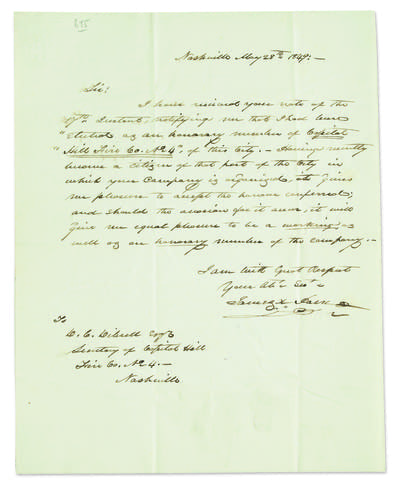 Nashville May 28th 1849:—
Sir:
I have received your note of the
17th Instant, notifying me that I had been
"Elected as an honorary member of Capitol
"Hill Fire Co. No 4" of this City. — Having recently
become a citizen of that part of the City in
which your Company is organized, it gives
me pleasure to accept the honour conferred;
and should the occasion for it occur, it will
give me equal pleasure to be a working, as
well as an honorary member of the company. —
I am with great Respect
Your Obt. Svt.
James K. Polk
To
Esqr
Secretary of Capitol Hill
Fire Co. No 4. —
Nashville